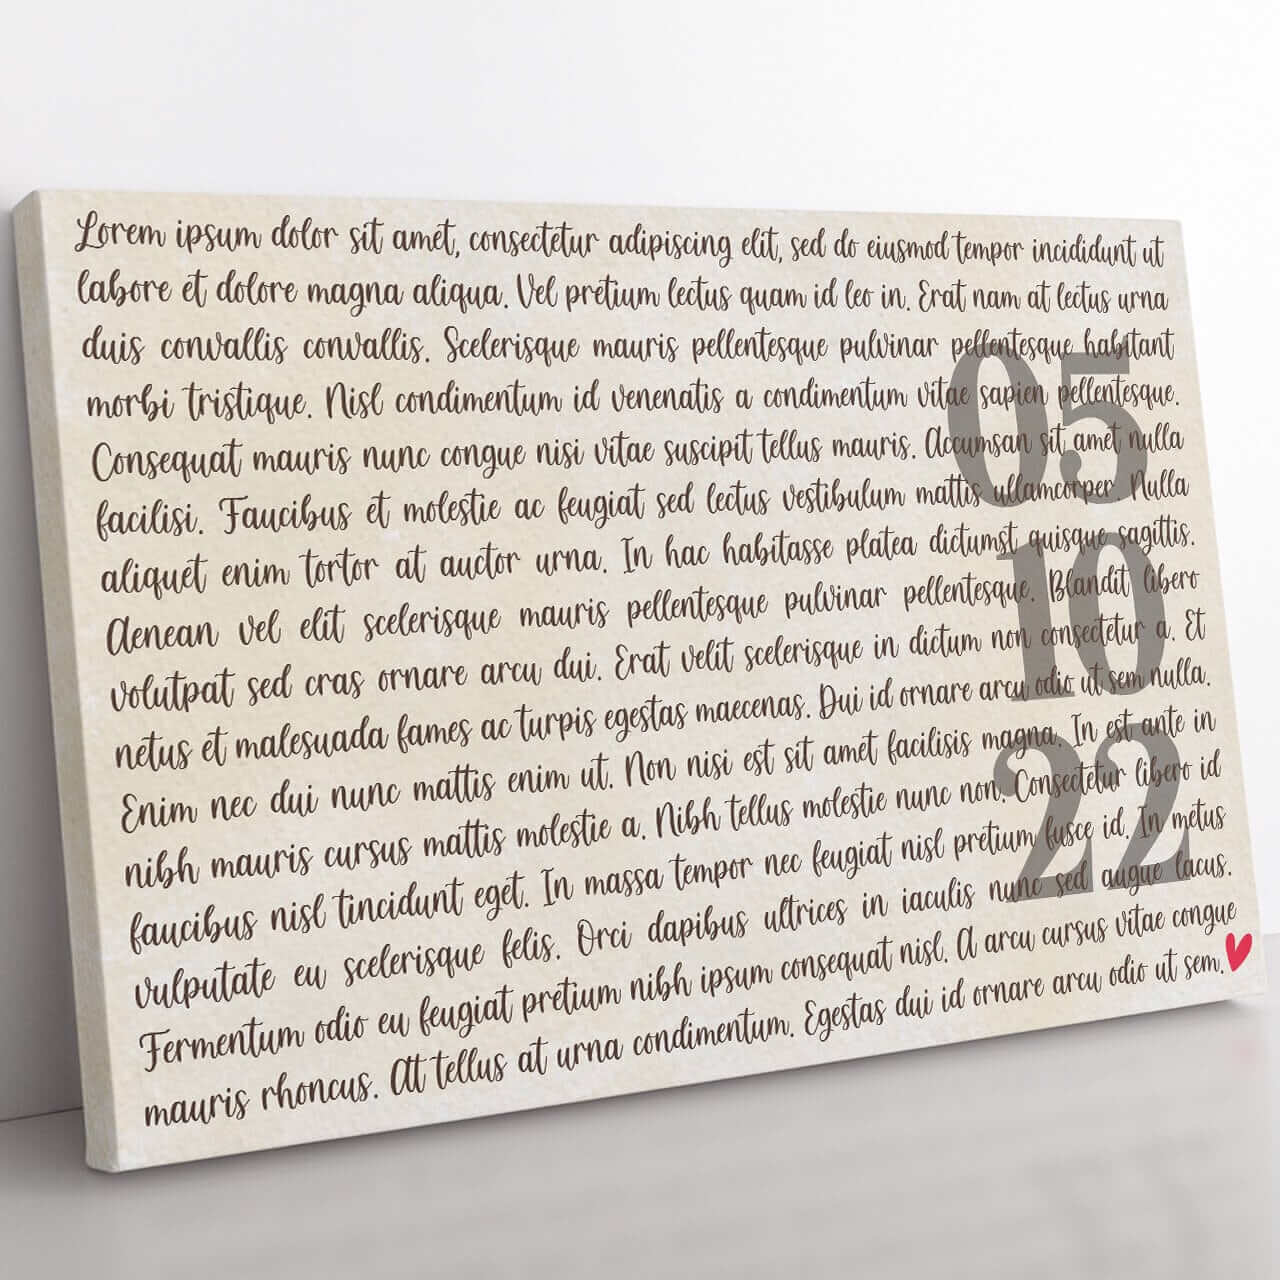 Lorem ipsum dolor sit amet, consectetur adipiscing elit, sed do eiusmod tempor incididunt ut
labore et dolore magna aliqua. Vel pretium lectus quam id leo in. Erat nam at lectus urna
duis convallis convallis. Scelerisque mauris pellentesque pulvinar pellentesque habitant
morbi tristique. Nisl condimentum id venenatis a condimentum vitae sapien pellentesque.
Consequat mauris nunc congue nisi vitae suscipit tellus mauris. Accumsan sit amet nulla
facilisi. Faucibus et molestie ac feugiat sed lectus vestibulum mattis ullamcorper. Nulla
aliquet enim tortor at auctor urna. In hac habitasse platea dictumst quisque sagittis.
Aenean vel elit scelerisque mauris pellentesque pulvinar pellentesque. Blandit libero
volutpat sed cras ornare arcu dui. Erat velit scelerisque in dictum non consectetur a. Et
netus et malesuada fames ac turpis egestas maecenas. Dui id ornare arcu odio ut sem nulla.
Enim nec dui nunc mattis enim ut. Non nisi est sit amet facilisis magna. In est ante in
nibh mauris cursus mattis molestie a. Nibh tellus molestie nunc non. Consectetur libero id
faucibus nisl tincidunt eget. In massa tempor nec feugiat nisl pretium fusce id. In metus
vulputate eu scelerisque felis. Orci dapibus ultrices in iaculis nunc sed augue lacus.
Fermentum odio eu feugiat pretium nibh ipsum consequat nisl. A arcu cursus vitae congue
mauris rhoncus. At tellus at urna condimentum. Egestas dui id ornare arcu odio ut sem.
05
10
22